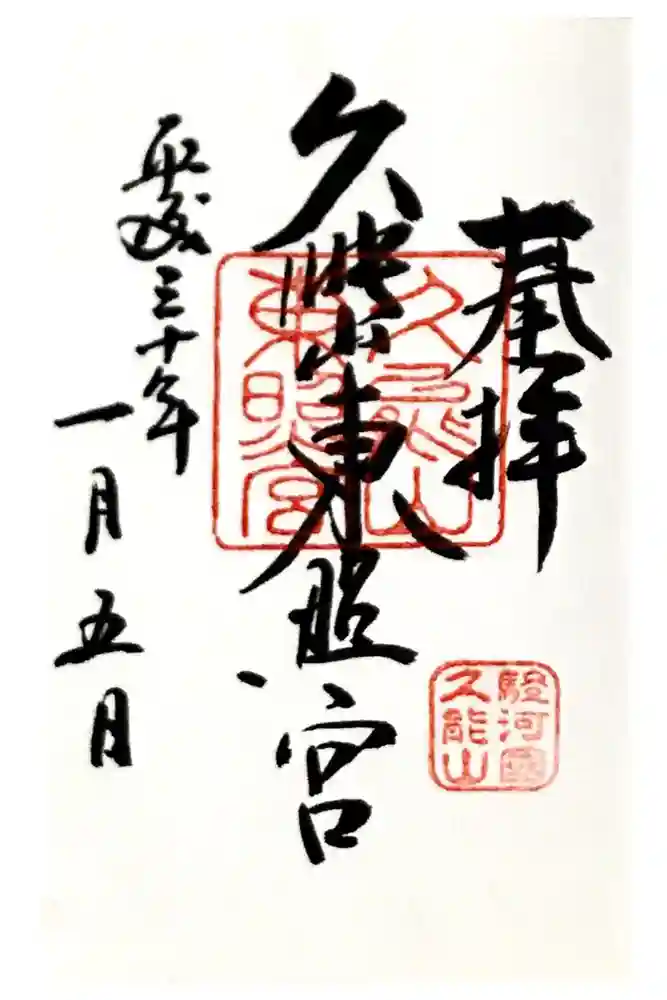 奉拝
久能山東照宮
平成三十年
一月五日
久能山
東照宮
駿河國
久能山